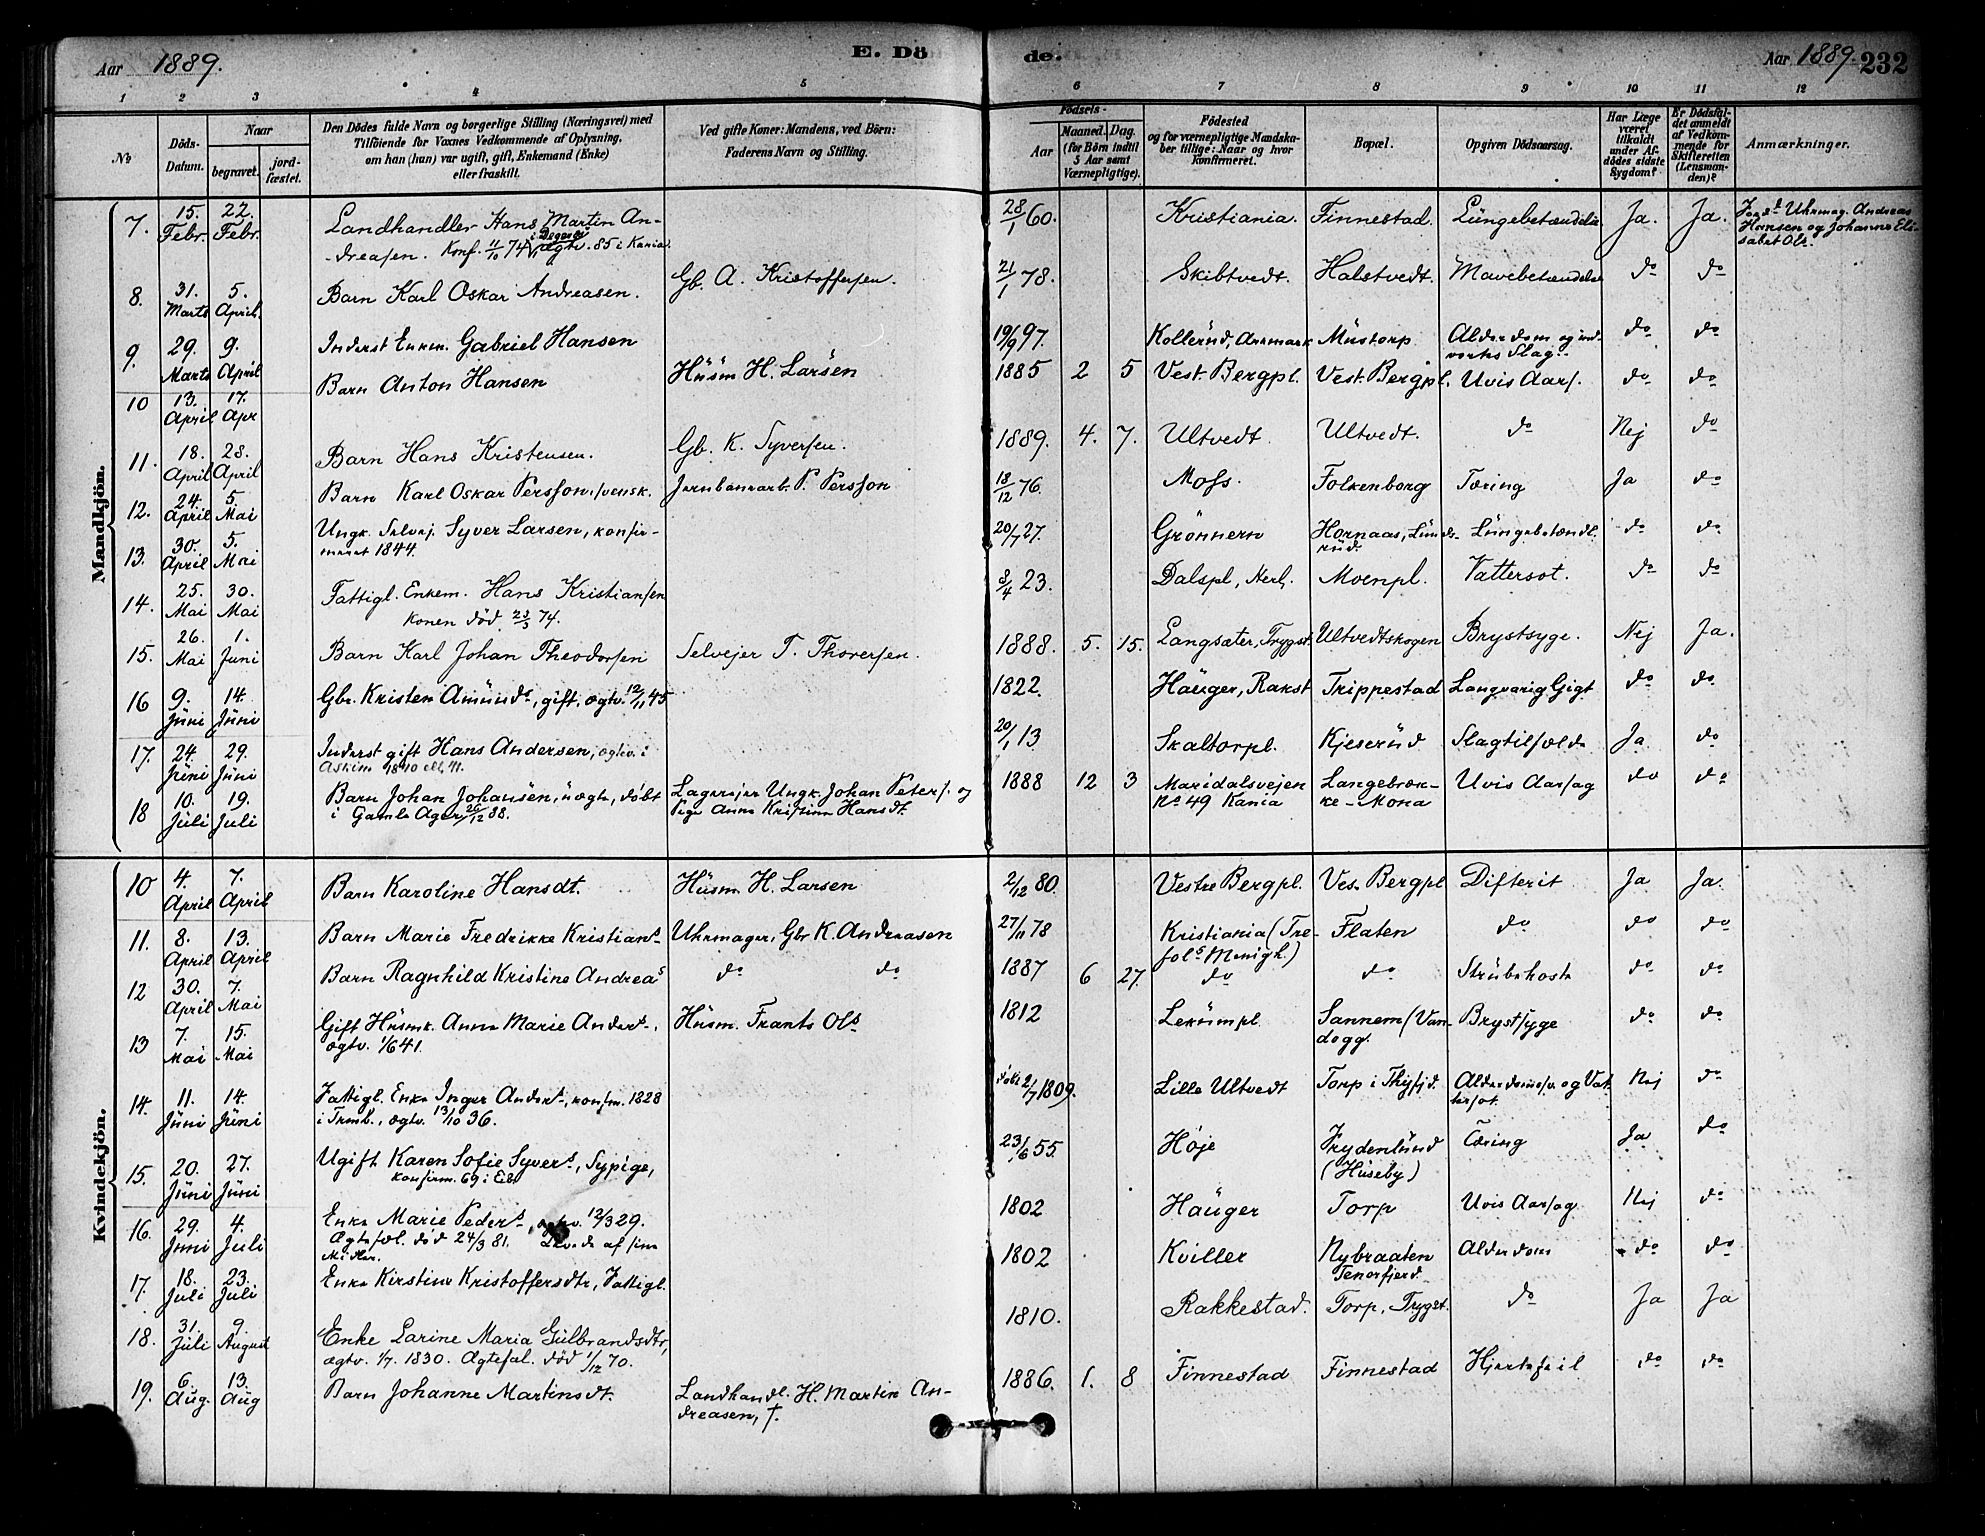 Aar 1889.
E. Dö
de.
Aar 1889. 232
1 2 3 4 5
6 7 8 9 10 11 12
No
Döds-Datum.
Naar
begravet.
jord-fæstet.
Den Dödes fulde Navn og borgerlige Stilling (Næringsvei) med
Tilföiende for Voxnes Vedkommende af Oplysning,
om han (hun) var ugift, gift, Enkemand (Enke)
eller fraskilt.
Ved gifte Koner: Mandens, ved Börn:
Faderens Navn og Stilling.
Födsels-
Aar
Maaned. Dag.
(for Börn indtil
5 Aar samt
Værnepligtige).
Födested
og for værnepligtige Mandska-
ber tillige: Naar og hvor
konfirmeret.
Bopæl.
Opgiven Dödsaarsag.
Har Læge
været
tilkaldt
under Af-
dödes sidste
Sygdom?
Er Dödsfal-
det anmeldt
af Vedkom-
mende for
Skifteretten
(Lensman-
den)?
Anmærkninger.
Mandkjön.
7. 15. Febr. 22. Febr. Landhandler Hans Martin An-
dreasen. Konf. 11/10 74 i ægtv. 85 i Kania. 28/1 60. Kristiania. Finnestad. Lüngebetændelse Ja. Ja. Uhrmag. Andreas
Hansen og Johanne Eli-
sabet Ols.
8. 31. Marts 5. April. Barn Karl Oskar Andreasen. Gb. A. Kristoffersen. 21/1 78. Skibtvedt. Halstvedt. Mavebetændelse do do
9. 29. Marts 9. April Inderst Enkm. Gabriel Hansen 19/9 97. Kollerüd, Müstorp Alderdom og
Slag. do do
10 13. April 17. Apr Barn Anton Hansen Hüsm H. Larsen 1885 2 5 Vest. Bergpl. Vest. Bergpl. Uvis Aars. do do
11. 18. April 28. April Barn Hans Kristensen. Gb. K. Syversen. 1889. 4. 7. Ultvedt. Ultvedt. do Nej do
12. 24. April 5. Mai Barn Karl Oskar Persson, svensk. Jernbanearb. P. Persson 18/12 76. Moss. Folkenborg Tæring Ja do
13. 30. April 5. Mai Ungk. Selvej. Syver Larsen, konfir-
meret 1844. 20/7 27. Grönnern Hornaas, Lünde-
rüd. Lüngebetændl. do do
14. 25. Mai 30. Mai Fattigl. Enkem. Hans Kristiansen
Konen död 23/3 74. 8/4 23. Dalspl, Herl. Moenpl. Vattersot. do do
15. 26. Mai 1. Juni Barn Karl Johan Theodorsen Selvejer T. Thoresen. 1888. 5. 15. Langsæter, Trygst. Ultvedtskogen Brystsyge. Nej Ja.
16 9. Jüni 14. Jüni Gbr. Kristen Amünds, gift, ægtv. 12/11 45 1822. Haüger, Rakst Trippestad Langvarig Gigt do do
17. 24. Jüni 29. Jüni Inderst gift Hans Andersen, ægtv. i
Askim 1840 ell. 41. 20/1 13 Skaltorpl. Kjeserüd Slagtilfælde Ja do
18 10. Jüli 19. Juli Barn Johan Johansen, üægte, döbt
i Gamle Ager 26/12 88. Ungk. Johan Peters. og
Pige Anne Kristine Hansdt. 1888 12 3 Maridalsvejen
No 49 Kania Langebræk-
ke - Mona Uvis Aarsag do do
Kvindekjön.
10 4. April 7. April Barn Karoline Hansdt. Hüsm H. Larsen 2/12 80. Vestre Bergpl. Ves. Bergpl Difterit Ja Ja.
11. 8. April 13. April Barn Marie Fredrikke Kristians Uhrmager, Gbr K. Andreasen 27/11 78 Kristiania (Tre-
fol. Menigh.) Flaten do do do
12 30. April 7. Mai Barn Ragnhild Kristine Andreas do do 1887 6 27. do do Strübehoste do do
13 7. Mai 15. Mai Gift Hüsmk. Anne Marie Anders,
ægtv. 1/6 41. Hüsm. Frants Ols 1812 Lekümpl. Sannem (Van-
dogg. Brystsyge do do
14. 11. Jüni 14. Jüni Fattigl. Enke Inger Anders, konfm. 1828
i Trmb., ægtv. 13/10 36. döbt 2/7 1809. Lille Ultvedt Torp i Alderdomssv. og Vat-
tersot. Nej do
15. 20. Jüni 27. Jüni Ugift Karen Sofie Syvers, Sypige,
konfirm. 69 i Eib 23/6 55. Höje Frydenlünd
(Hüseby) Tæring Ja do
16. 29. Juni 4. Juli Enke Marie Peders, ægtv. 12/3 29.
Ægtefæl. död 24/3 81. Levede af sine
Midler. 1802 Haüger Torp Uvis Aarsag Nej do
17. 18. Juli 23. Juli Enke Kirstine Kristoffersdtr, Fattigl. 1802 Kviller Nybraaten
Tenorfjerd. Alderdom do do
18. 31. Jüli 9. August Enke Larine Maria Gülbrandsdtr,
ægtv. 1/7. 1830. Ægtefæl. död 1/12 70. 1810. Rakkestad. Torp, Trygst. do Ja Ja
19. 6. Aug. 13. Aug Barn Johanne Martinsdt. Landhandl. H. Martin An-
dreasen, †. 1886. 1. 8 Finnestad Finnestad Hjertefeil do do